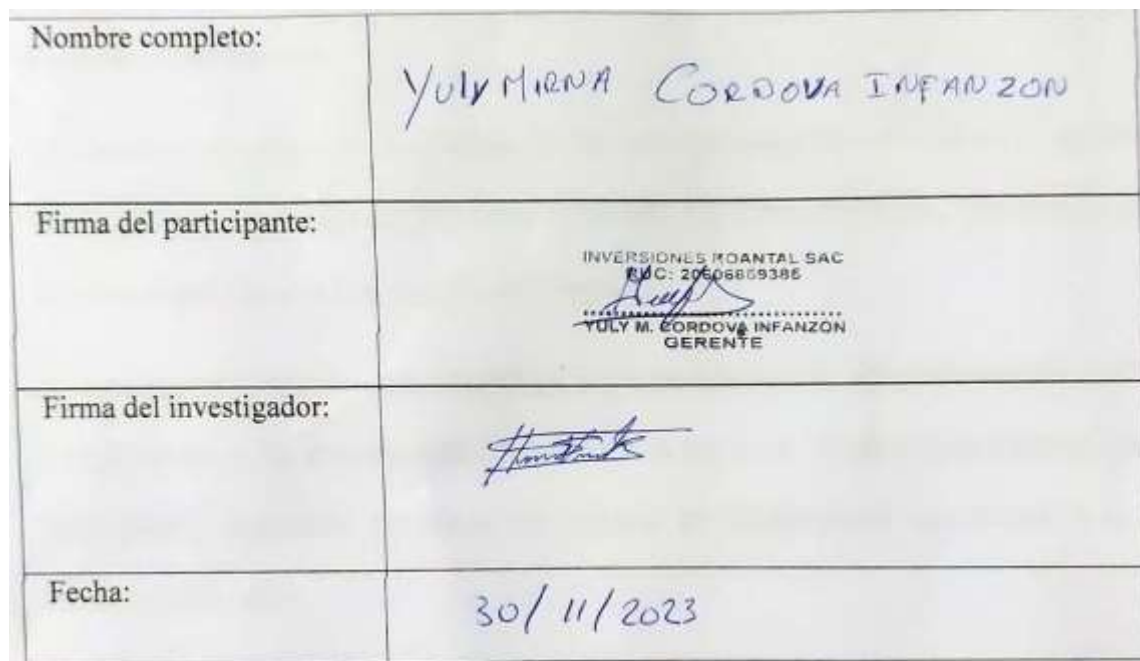 Nombre completo:
Yuly MIRNA CORDOVA INFANZON
Firma del participante:
INVERSIONES ROANTAL SAC
RUC: 20606869386
YULY M. CORDOVA INFANZON
GERENTE
Firma del investigador:
Fecha:
30/11/2023